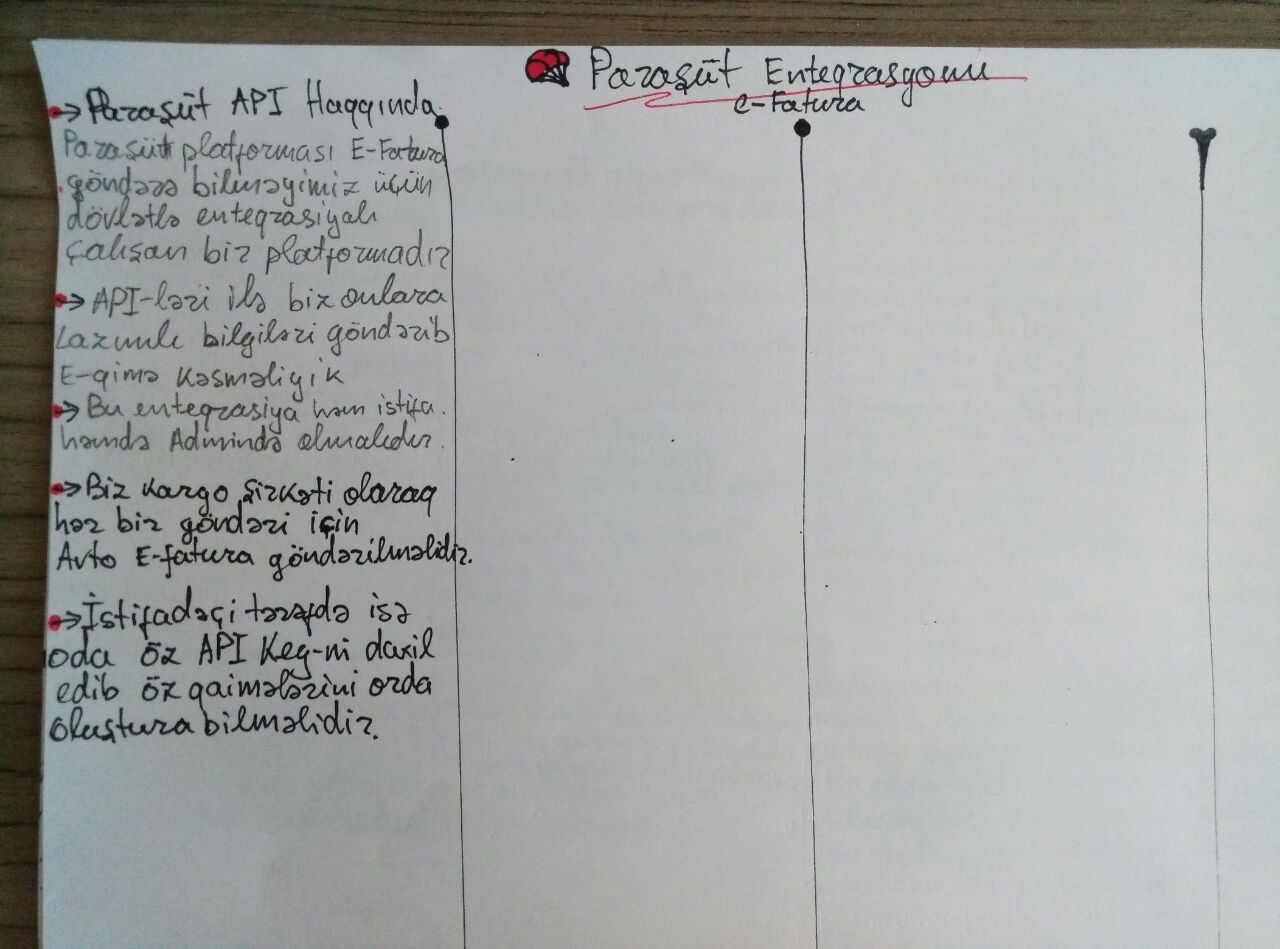 Paraşüt Enteqrasyonu
e-Fatura
Paraşüt API Haqqında
Paraşüt platforması E-Fatura
göndərə bilməyimiz üçün
dövlətlə enteqrasiyalı
çalışan bir platformadır
API-ləri ilə biz onlara
Lazımlı bilgiləri göndərib
E-qimə kəsməliyik
Bu enteqrasiya həm istifa.
həmdə Admində olmalıdır.
Biz kargo şirkəti olaraq
hər bir göndəri için
Avto E-fatura göndərilməlidir.
İstifadəçi tərəfdə isə
oda öz API Key-ni daxil
edib öz qaimələrini orda
oluştura bilməlidir.